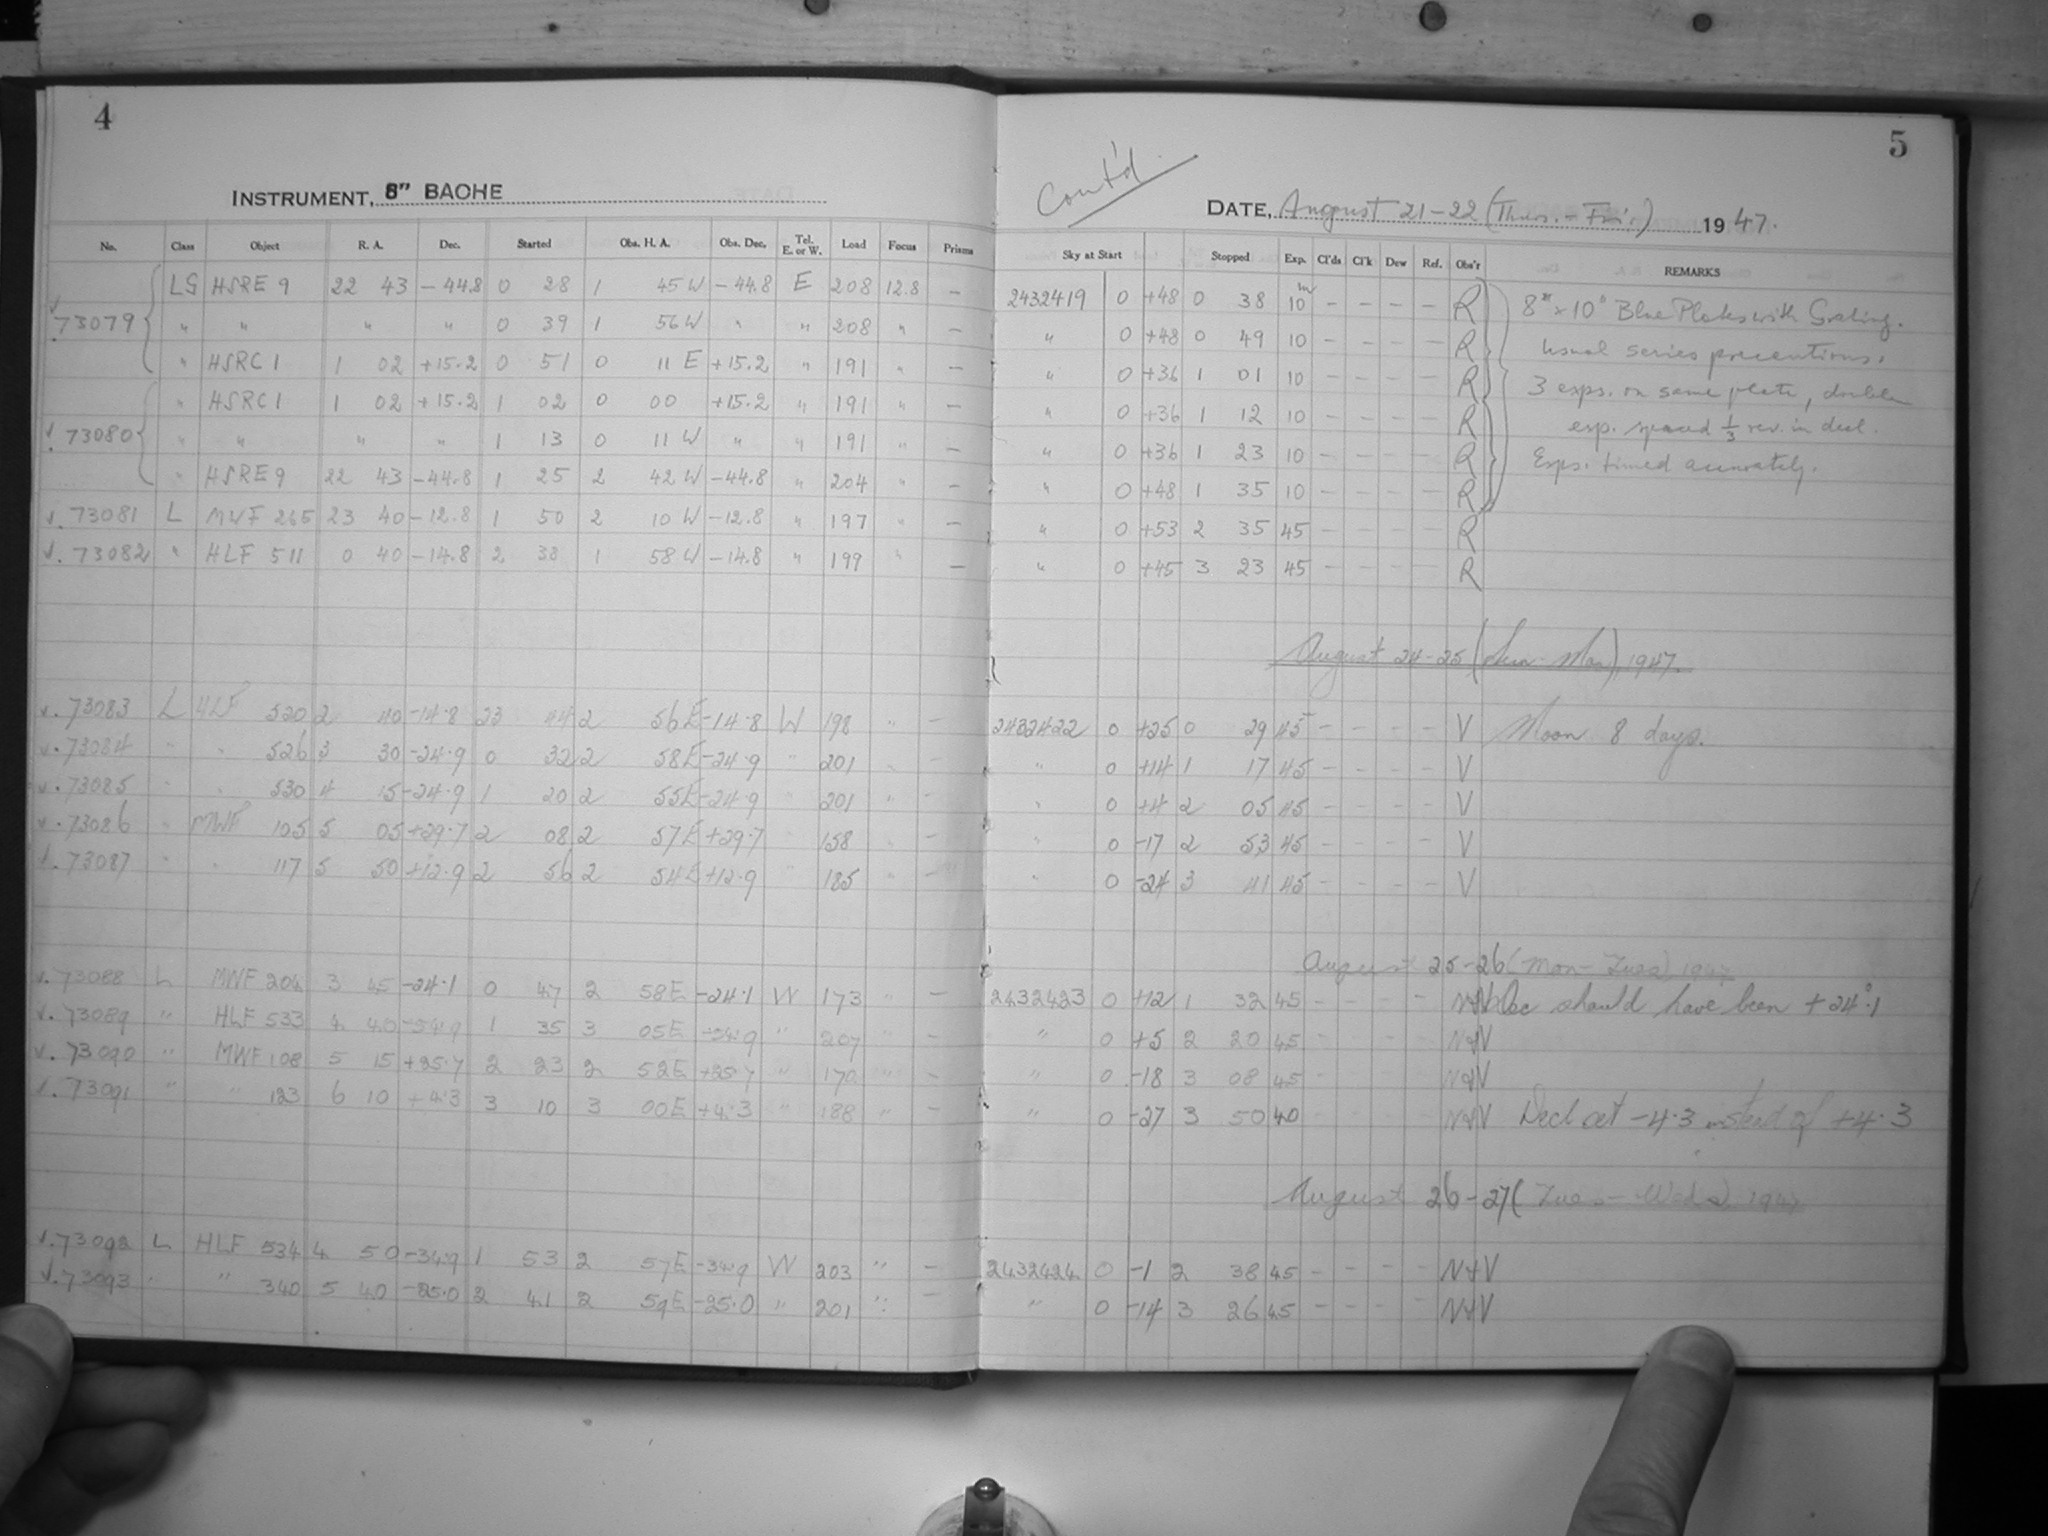 4
INSTRUMENT, 8" BAOHE
No. Class Object R. A. Dec. Started Obs. H. A. Obs. Dec. Tel. E. or W. Load Focus Prisms
LS HSRE 9 22 43 -44.8 0 28 1 45 W -44.8 E 208 12.8 —
73079 " " " " 0 39 1 56 W " " 208 " —
" HSRC 1 1 02 +15.2 0 51 0 11 E +15.2 " 191 " —
" HSRC 1 1 02 +15.2 1 02 0 00 +15.2 " 191 " —
√ 73080 " " " " 1 13 0 11 W " " 191 " —
" HSRE 9 22 43 -44.8 1 25 2 42 W -44.8 " 204 " —
√. 73081 L MWF 265 23 40 -12.8 1 50 2 10 W -12.8 " 197 " —
√. 73082 " HLF 511 0 40 -14.8 2 38 1 58 W -14.8 " 199 " —
√. 73083 L HLF 520 2 40 -14.8 23 44 2 56 E -14.8 W 198 " —
√. 73084 " " 526 3 30 -24.9 0 32 2 58 E -24.9 " 201 " —
√. 73085 " " 530 4 15 -24.9 1 20 2 55 E -24.9 " 201 " —
√. 73086 " MWF 105 5 05 +29.7 2 08 2 57 E +29.7 " 158 " —
√. 73087 " " 117 5 50 +12.9 2 56 2 54 E +12.9 " 185 " —
√. 73088 L MWF 204 3 45 -24.1 0 47 2 58 E -24.1 W 173 " —
√. 73089 " HLF 533 4 40 -34.9 1 35 3 05 E -34.9 " 207 " —
√. 73090 " MWF 108 5 15 +25.7 2 23 2 52 E +25.7 " 170 " —
√. 73091 " " 123 6 10 +4.3 3 10 3 00 E +4.3 " 188 " —
√. 73092 L HLF 534 4 50 -34.9 1 53 2 57 E -34.9 W 203 " —
√. 73093 " " 340 5 40 -25.0 2 41 2 59 E -25.0 " 201 " —
5
Cont'd
DATE, August 21-22 (Thurs. - Fri.) 1947.
Sky at Start Stopped Exp. Cl'ds Cl'k Dew Ref. Obs'r REMARKS
2432419 0 +48 0 38 10m - - - - R 8" x 10" Blue Plates with Grating.
" 0 +48 0 49 10 - - - - R Usual series precautions.
" 0 +36 1 01 10 - - - - R 3 exps. on same plate, double
" 0 +36 1 12 10 - - - - R exp. spaced 1/3 rev. in decl.
" 0 +36 1 23 10 - - - - R Exps. timed accurately.
" 0 +48 1 35 10 - - - - R
" 0 +53 2 35 45 - - - - R
" 0 +45 3 23 45 - - - - R
August 24-25 (Sun - Mon), 1947.
2432422 0 +25 0 29 45 - - - - V Moon 8 days.
" 0 +14 1 17 45 - - - - V
" 0 +4 2 05 45 - - - - V
" 0 -17 2 53 45 - - - - V
" 0 -24 3 41 45 - - - - V
August 25-26 (Mon - Tues) 1947
2432423 0 +12 1 32 45 - - - - N+V Dec should have been +24°.1
" 0 +5 2 20 45 - - - - N+V
" 0 -18 3 08 45 - - - - N+V
" 0 -27 3 50 40 - - - - N+V Decl set -4.3 instead of +4.3
August 26-27 (Tues - Weds) 1947
2432424 0 -1 2 38 45 - - - - N+V
" 0 -14 3 26 45 - - - - N+V